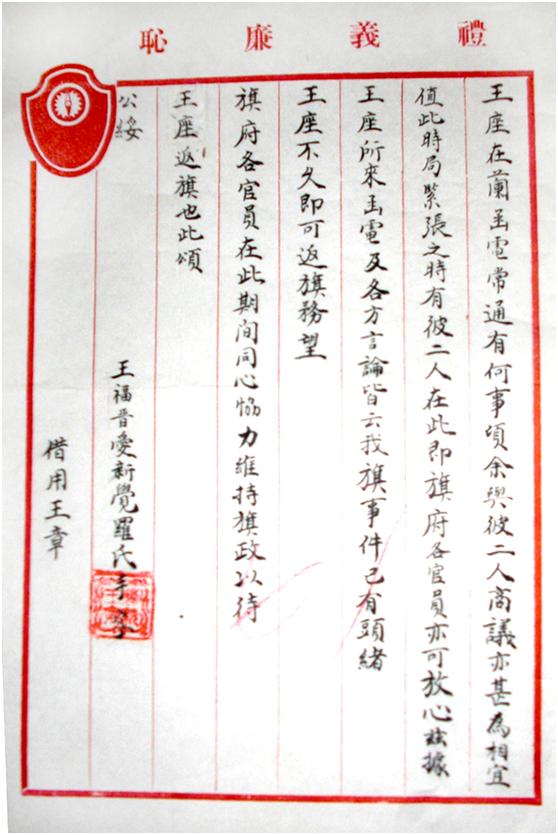 禮義廉恥
王座在蘭函電常通有何事項余與彼二人商議亦甚為相宜
值此時局緊張之時有彼二人在此即旗府各官員亦可放心茲據
王座所來函電及各方言論皆云我旗事件已有頭緒
王座不久即可返旗務望
旗府各官員在此期間同心恊力維持旗政以待
王座返旗也此頌
公綏
王福晋愛新覺羅氏手啓
借用王章